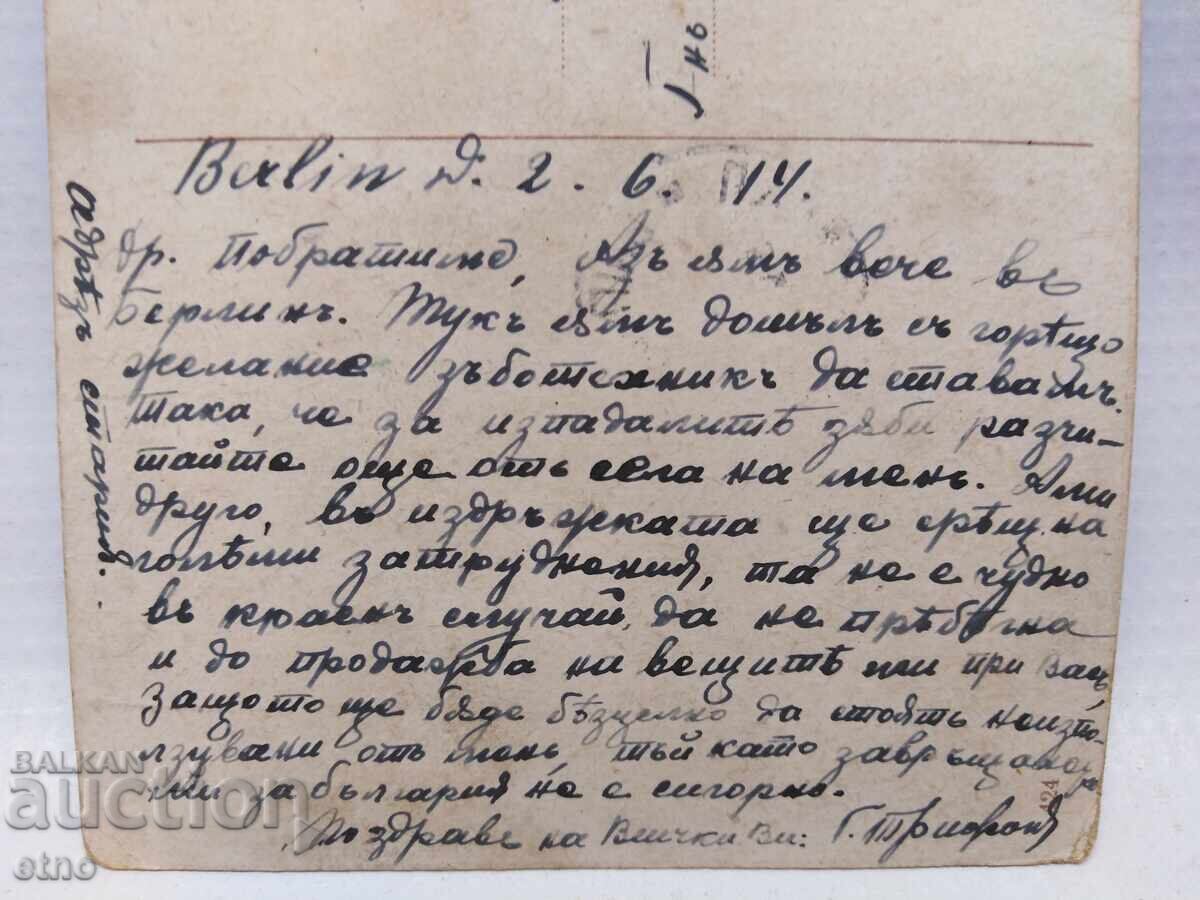 Г-нъ
Berlin D. 2. 6. 14.
Др. побратиме, Азъ съмъ вече въ
Берлинъ. Тукъ съмъ дошълъ съ горѣщо
желание зъботехникъ да ставамъ.
така, че за изпадалитѣ зѫби разчи-
тайте още отъ сега на менъ. Ами
друго, въ издръжката ще срѣщна
голѣми затруднения, та не е чудно
въ краенъ случай, да не прѣбѣгна
и до продажба на вещитѣ ми при Васъ,
Защото ще бѫде безцелно да стоятъ неизпо-
лзувани отъ менъ, тъй като завръщане
ми за България не е сигорно.
Поздраве на Всички Ви: Г. Трифоновъ
адрѣсъ стария.
424
BALKAN
auction
etno